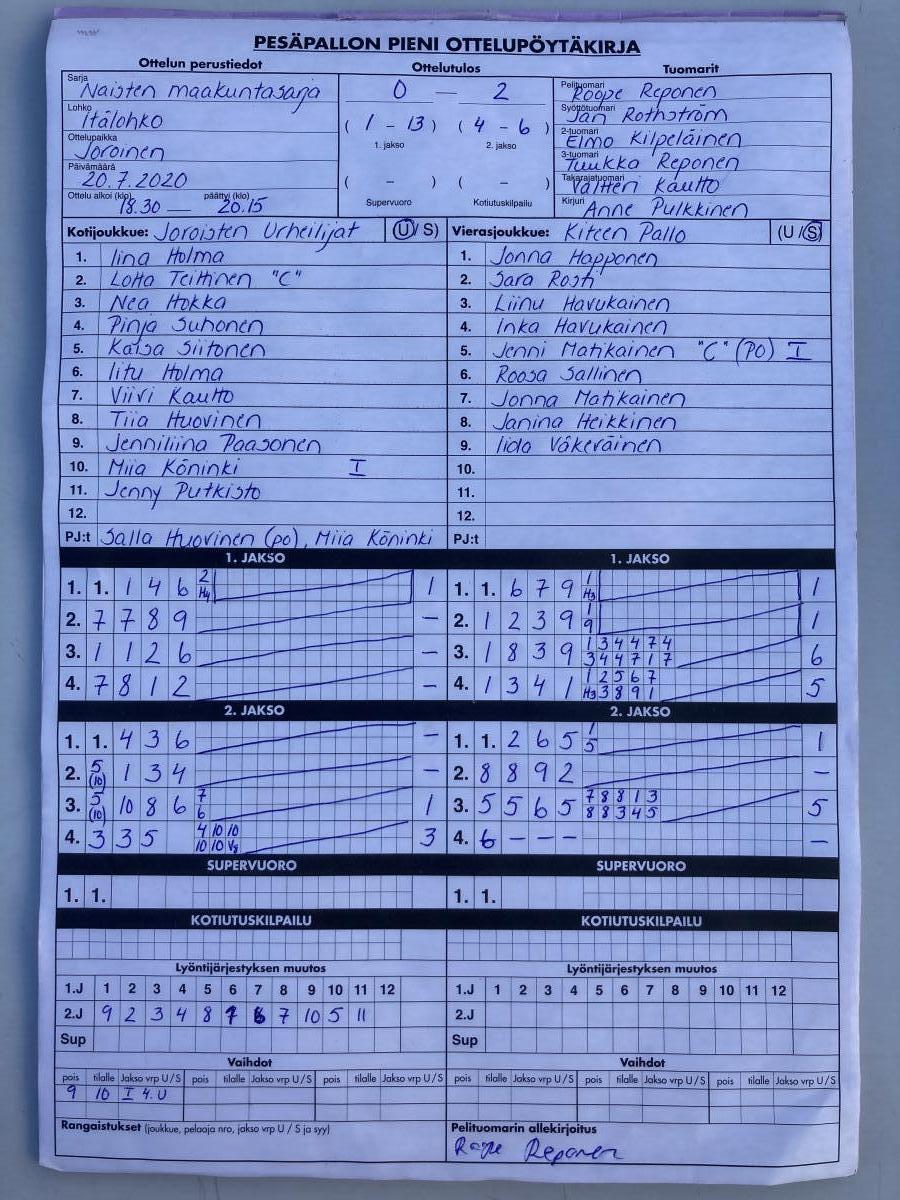 PESÄPALLON PIENI OTTELUPÖYTÄKIRJA
Ottelun perustiedot Ottelutulos Tuomarit
Sarja Naisten maakuntasarja
Lohko Itälohko
Ottelupaikka Joroinen
Päivämäärä 20.7.2020
Ottelu alkoi (klo) 18.30 — päättyi (klo) 20.15
0 — 2
( 1 - 13 ) ( 4 - 6 )
1. jakso 2. jakso
( - ) ( - )
Supervuoro Kotiutuskilpailu
Pelituomari Roope Reponen
Syöttötuomari Jan Rothström
2-tuomari Elmo Kilpeläinen
3-tuomari Tuukka Reponen
Takarajatuomari Valtteri Kautto
Kirjuri Anne Pulkkinen
Kotijoukkue: Joroisten Urheilijat (U / S)
1. Iina Holma
2. Lotta Teittinen "C"
3. Nea Hokka
4. Pinja Suhonen
5. Kaisa Siitonen
6. Iitu Holma
7. Viivi Kautto
8. Tiia Huovinen
9. Jenniliina Paasonen
10. Miia Köninki I
11. Jenny Putkisto
12.
PJ:t Salla Huovinen (po), Miia Köninki
Vierasjoukkue: Kiteen Pallo (U / S)
1. Jonna Happonen
2. Sara Rosti
3. Liinu Havukainen
4. Inka Havukainen
5. Jenni Matikainen "C" (PO) I
6. Roosa Sallinen
7. Jonna Matikainen
8. Janina Heikkinen
9. Iida Väkeväinen
10.
11.
12.
PJ:t
1. JAKSO
1. 1. 1 4 6 2 H4 1
2. 7 7 8 9 —
3. 1 1 2 6 —
4. 7 8 1 2 —
1. JAKSO
1. 1. 6 7 9 1 H3 1
2. 1 2 3 9 1 9 1
3. 1 8 3 9 1 3 4 4 7 4 3 4 4 7 1 7 6
4. 1 3 4 1 1 2 5 6 7 H3 3 8 9 1 5
2. JAKSO
1. 1. 4 3 6 —
2. 5 (10) 1 3 4 —
3. 5 (10) 10 8 6 7 6 1
4. 3 3 5 4 10 10 10 10 V8 3
2. JAKSO
1. 1. 2 6 5 1 5 1
2. 8 8 9 2 —
3. 5 5 6 5 7 8 8 1 3 8 8 3 4 5 5
4. 6 — — — —
SUPERVUORO SUPERVUORO
1. 1. 1. 1.
KOTIUTUSKILPAILU KOTIUTUSKILPAILU
Lyöntijärjestyksen muutos Lyöntijärjestyksen muutos
1.J 1 2 3 4 5 6 7 8 9 10 11 12 1.J 1 2 3 4 5 6 7 8 9 10 11 12
2.J 9 2 3 4 8 1 6 7 10 5 11 2.J
Sup Sup
Vaihdot Vaihdot
pois tilalle Jakso vrp U / S pois tilalle Jakso vrp U / S pois tilalle Jakso vrp U / S pois tilalle Jakso vrp U / S pois tilalle Jakso vrp U / S pois tilalle Jakso vrp U / S
9 10 I 4. U
Rangaistukset (joukkue, pelaaja nro, jakso vrp U / S ja syy) Pelituomarin allekirjoitus
Roope Reponen